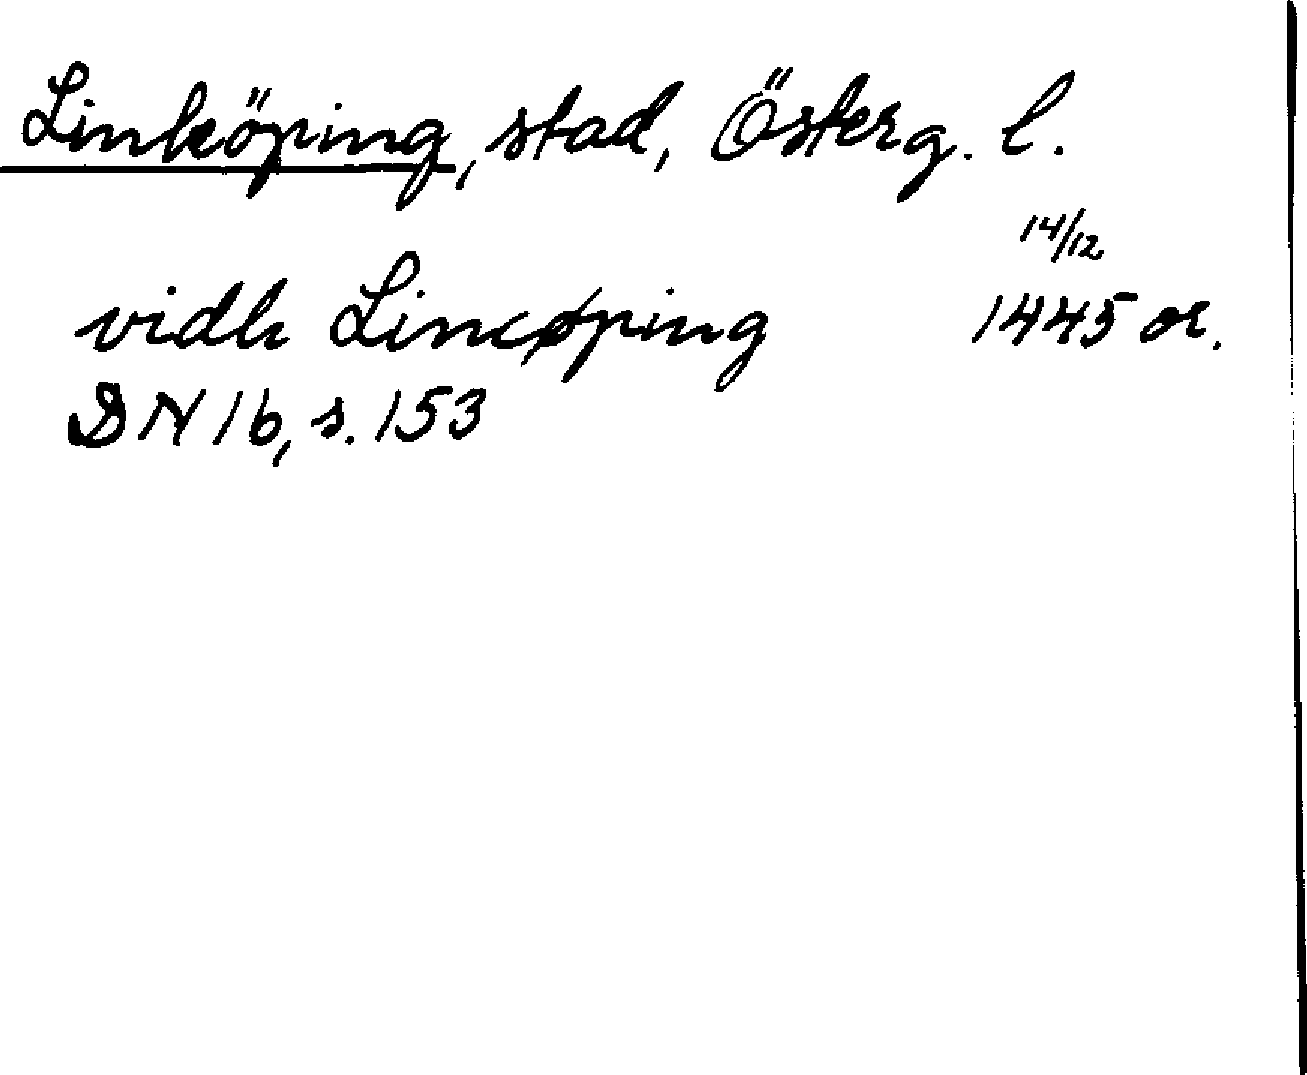 Linköping, stad, Österg. l.
14/12
vidh Lincøping 1445 or.
DN 16, s. 153